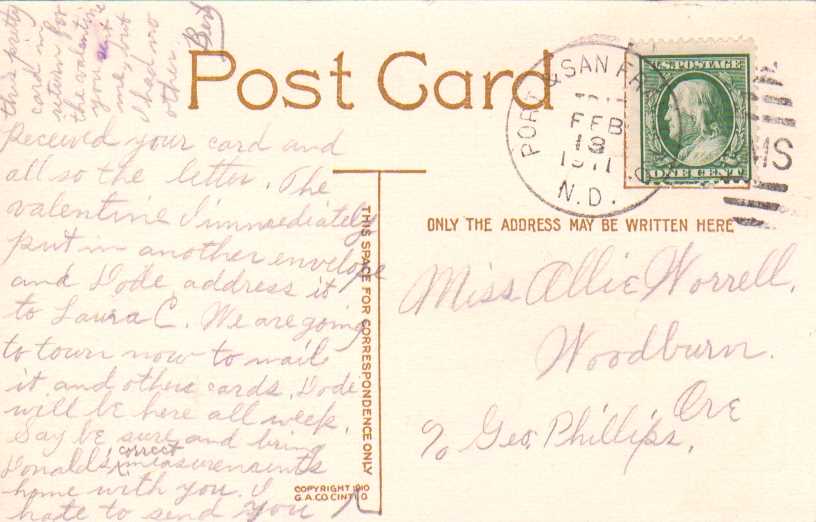 Post Card
Received your card and
all so the letter. The
valentine I immediately
put in another envelope
and Dode address it
to Laura C. We are going
to town now to mail
it and other cards. Dode
will be here all week.
Say be sure and bring
Donald's correct measuremunts
home with you. I
hate to send you
this pretty
card in
return for
the valentine
you sent
me, but
I had no
other.
Bert
THIS SPACE FOR CORRESPONDENCE ONLY
COPYRIGHT 1910
G.A.CO. CINTI O
PORT & SAN FRAN
FEB
13
1911
N.D.
RMS
U.S. POSTAGE
ONE CENT
ONLY THE ADDRESS MAY BE WRITTEN HERE
Miss Allie Worrell,
Woodburn.
Ore
c/o Geo. Phillips.